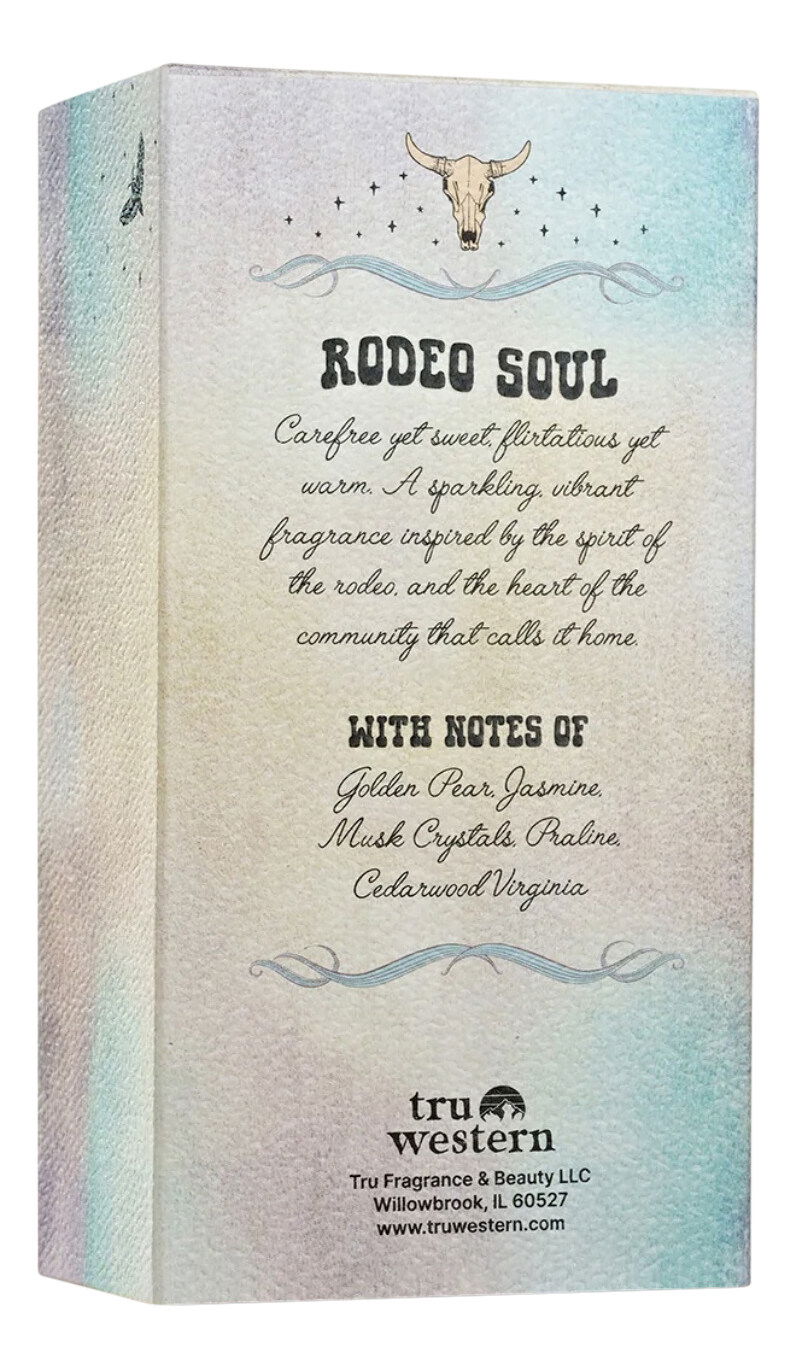 RODEO SOUL
Carefree yet sweet, flirtatious yet
warm. A sparkling, vibrant
fragrance inspired by the spirit of
the rodeo, and the heart of the
community that calls it home.
WITH NOTES OF
Golden Pear, Jasmine,
Musk Crystals, Praline,
Cedarwood Virginia
tru
western
Tru Fragrance & Beauty LLC
Willowbrook, IL 60527
www.truwestern.com